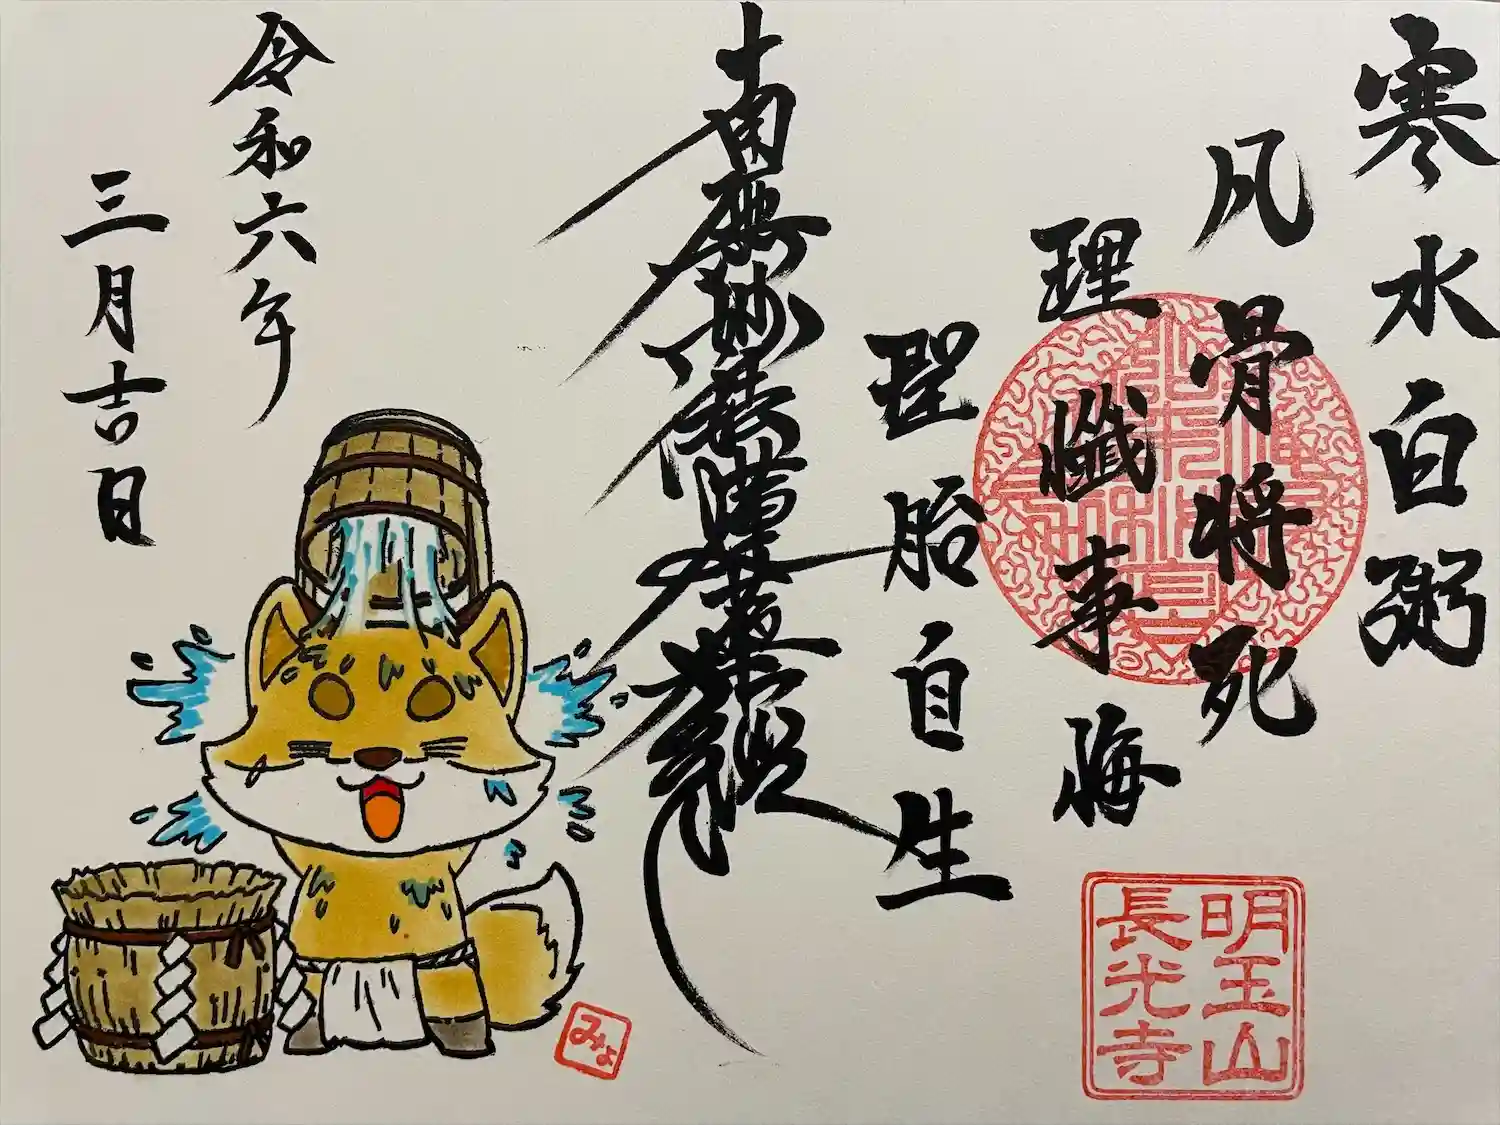 寒水白粥
凡骨将死
理懺事悔
聖胎自生
南無妙法蓮華経
令和六年
三月吉日
明玉山
長光寺
みょ